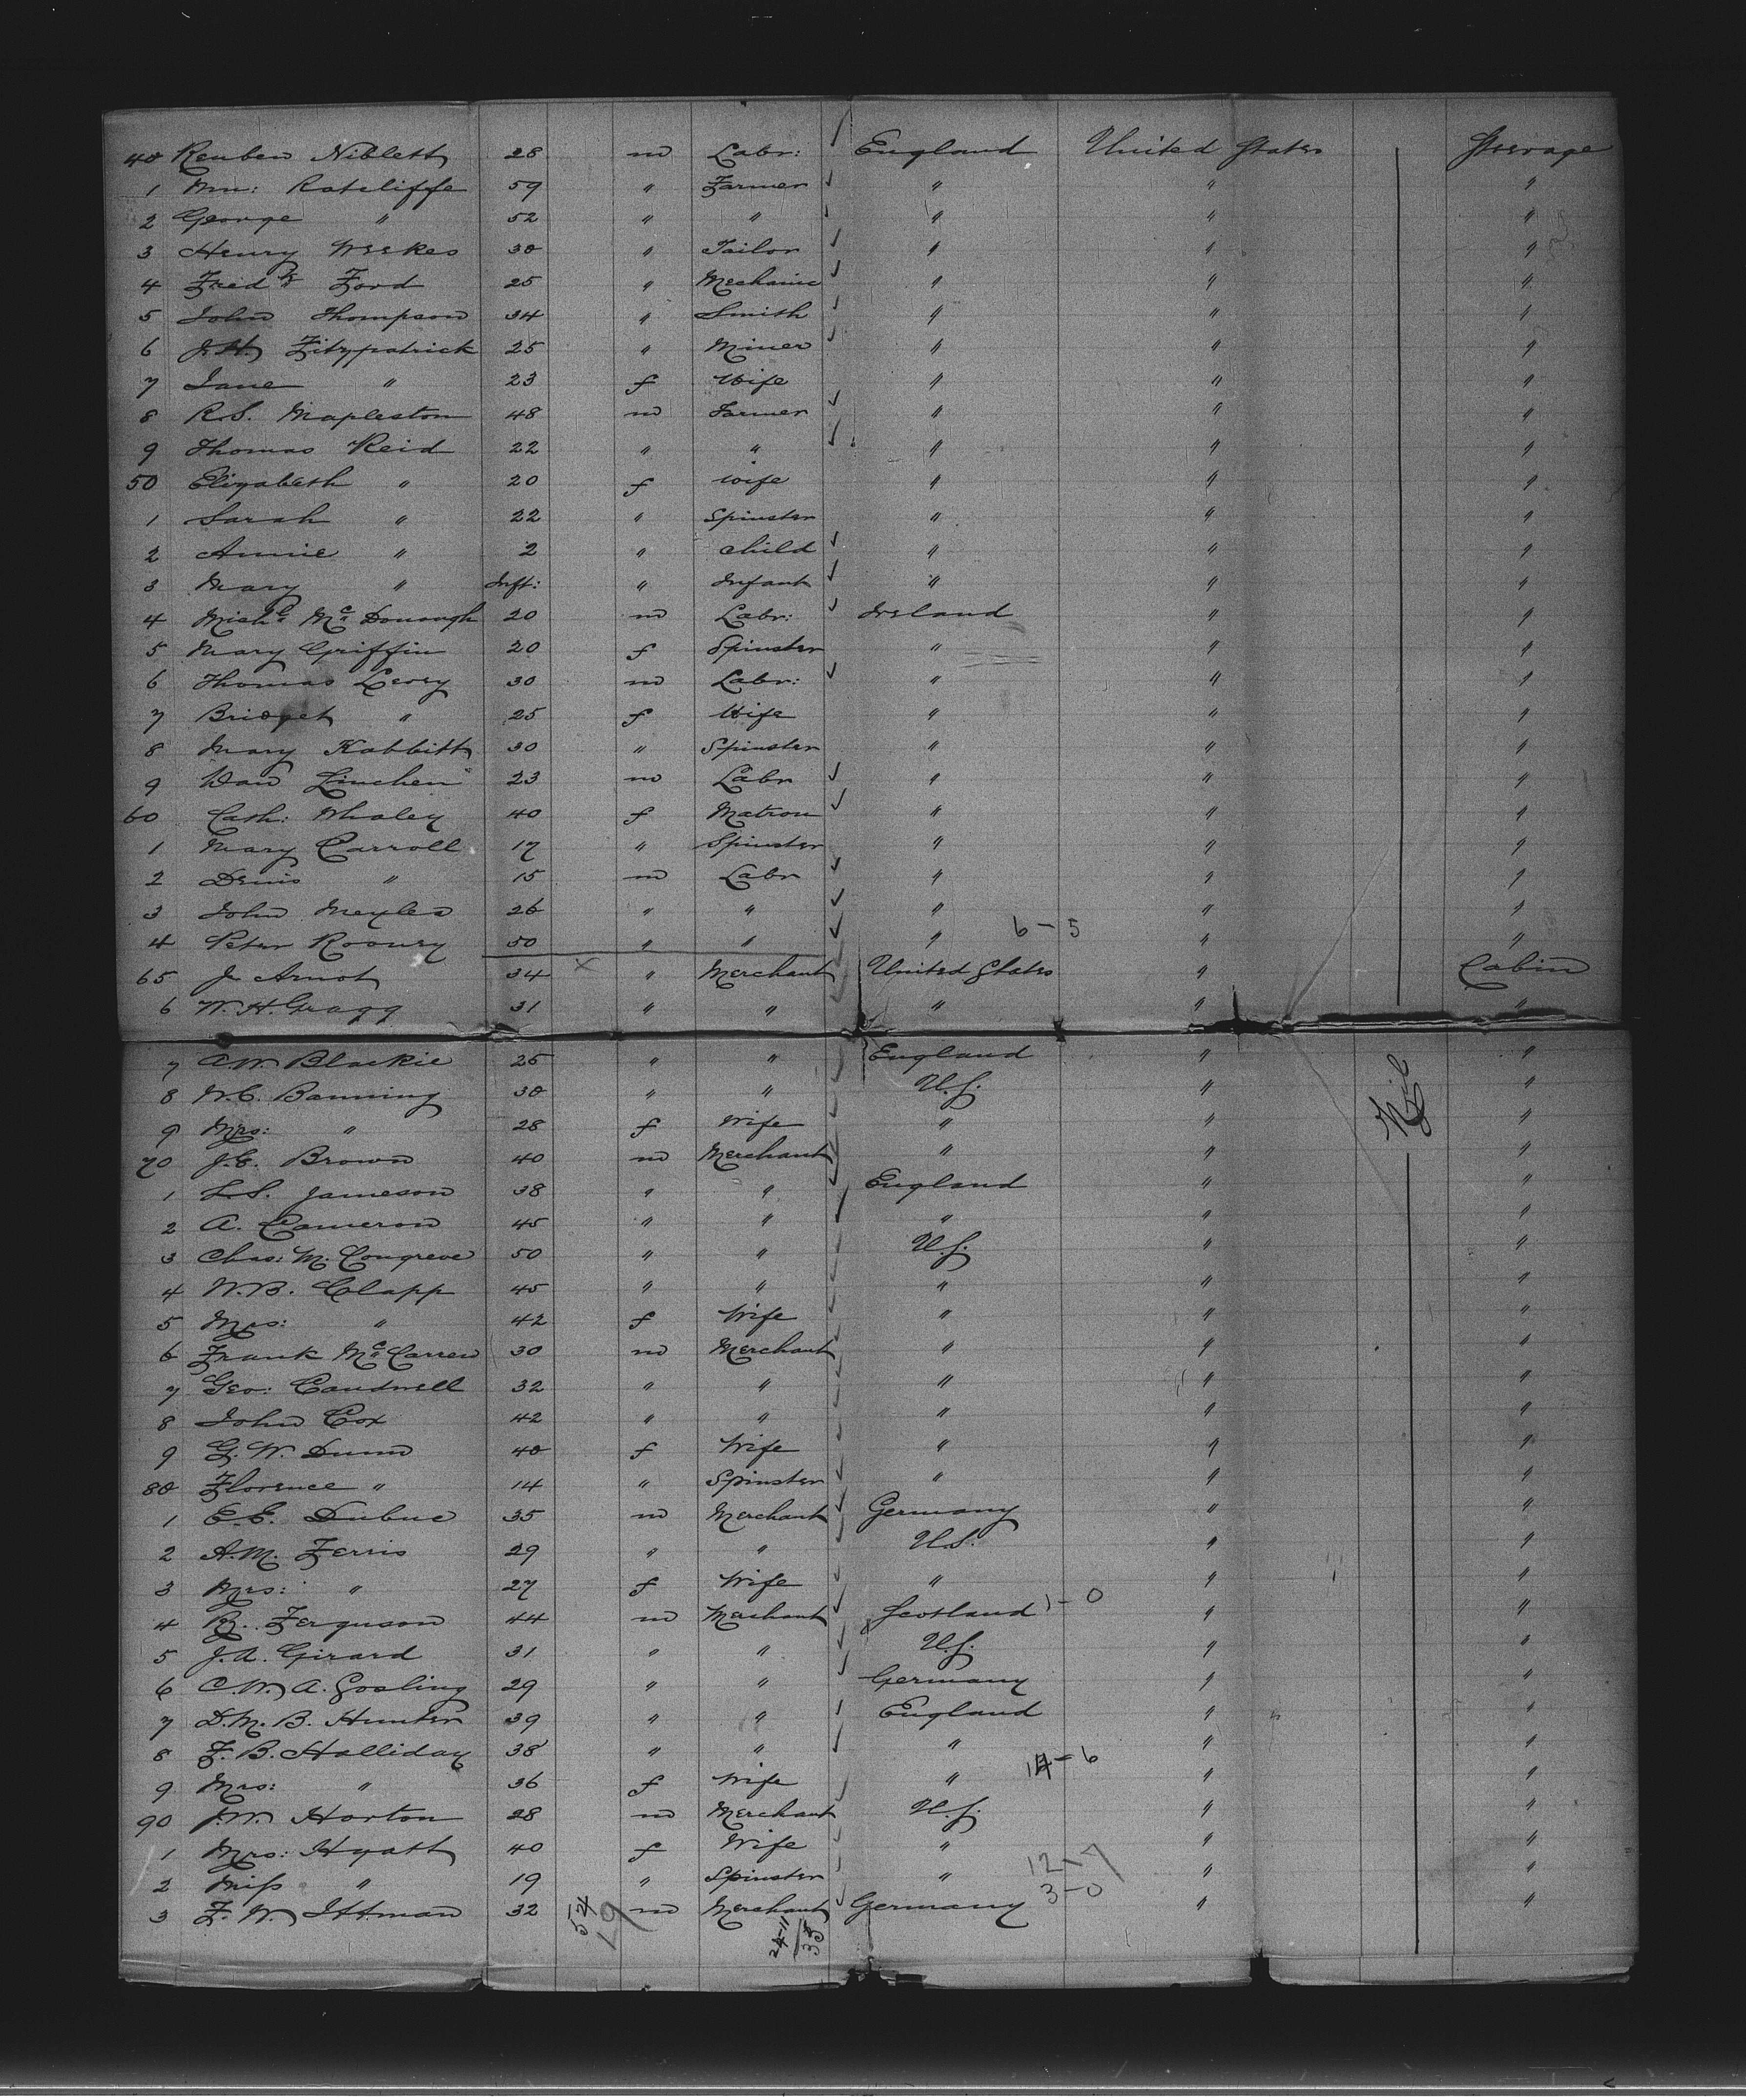 40 Reuben Niblett 28 m Labr: England United States Steerage
1 Wm: Ratcliffe 59 " Farmer " " "
2 George " 52 " " " " "
3 Henry Weekes 30 " Tailor " " "
4 Fredk Ford 25 " Mechanic " " "
5 John Thompson 34 " Smith " " "
6 J.H. Fitzpatrick 25 " Miner " " "
7 Jane " 23 f Wife " " "
8 R.S. Mapleston 48 m Farmer " " "
9 Thomas Reid 22 " " " " "
50 Elizabeth " 20 f Wife " " "
1 Sarah " 22 " Spinster " " "
2 Annie " 2 " Child " " "
3 Mary " Inft: " Infant " " "
4 Michl McDonough 20 m Labr: Ireland " "
5 Mary Griffin 20 f Spinster " " "
6 Thomas Leory 30 m Labr: " " "
7 Bridget " 25 f Wife " " "
8 Mary Kabbitt 30 " Spinster " " "
9 Linchen 23 m Labr " " "
60 Cath: Whaley 40 f Matron " " "
1 Mary Carroll 17 " Spinster " " "
2 Denis " 15 m Labr " " "
3 John Meyles 26 " " " " "
4 Peter Rooney 50 " " " 6-5 " "
65 J. Arnot 34 x " Merchant United States " Cabin
6 W.H. Gragg 31 " " " " "
7 C.W. Blackie 25 " " England " "
8 W.C. Banning 30 " " U.S. " Nil "
9 Mrs: " 28 f Wife " " "
70 J.E. Brown 40 m Merchant " " "
1 L.S. Jameson 38 " " England " "
2 A. Cameron 45 " " " " "
3 Chas: M. Congreve 50 " " U.S. " "
4 W.B. Clapp 45 " " " " "
5 Mrs: " 42 f Wife " " "
6 Frank McCarren 30 m Merchant " " "
7 Geo: Caudwell 32 " " " " "
8 John Cox 42 " " " " "
9 G.W. Dunn 40 f Wife " " "
80 Florence " 14 " Spinster " " "
1 E.E. Dubuc 35 m Merchant Germany " "
2 A.M. Ferris 29 " " U.S. " "
3 Mrs: " 27 f Wife " " "
4 R. Ferguson 44 m Merchant Scotland 1-0 " "
5 J.A. Girard 31 " " U.S. " "
6 C.W.A. Gosling 29 " " Germany " "
7 D.M.B. Hunter 39 " " England " "
8 F.B. Halliday 38 " " " " "
9 Mrs: " 36 f Wife " 14-6 " "
90 J.W. Horton 28 m Merchant U.S. " "
1 Mrs: Hyatt 40 f Wife " " "
2 Miss " 19 " Spinster " 12-7 " "
3 F.W. Ittman 32 m Merchant Germany 3-0 " "
54 19 24-11 35